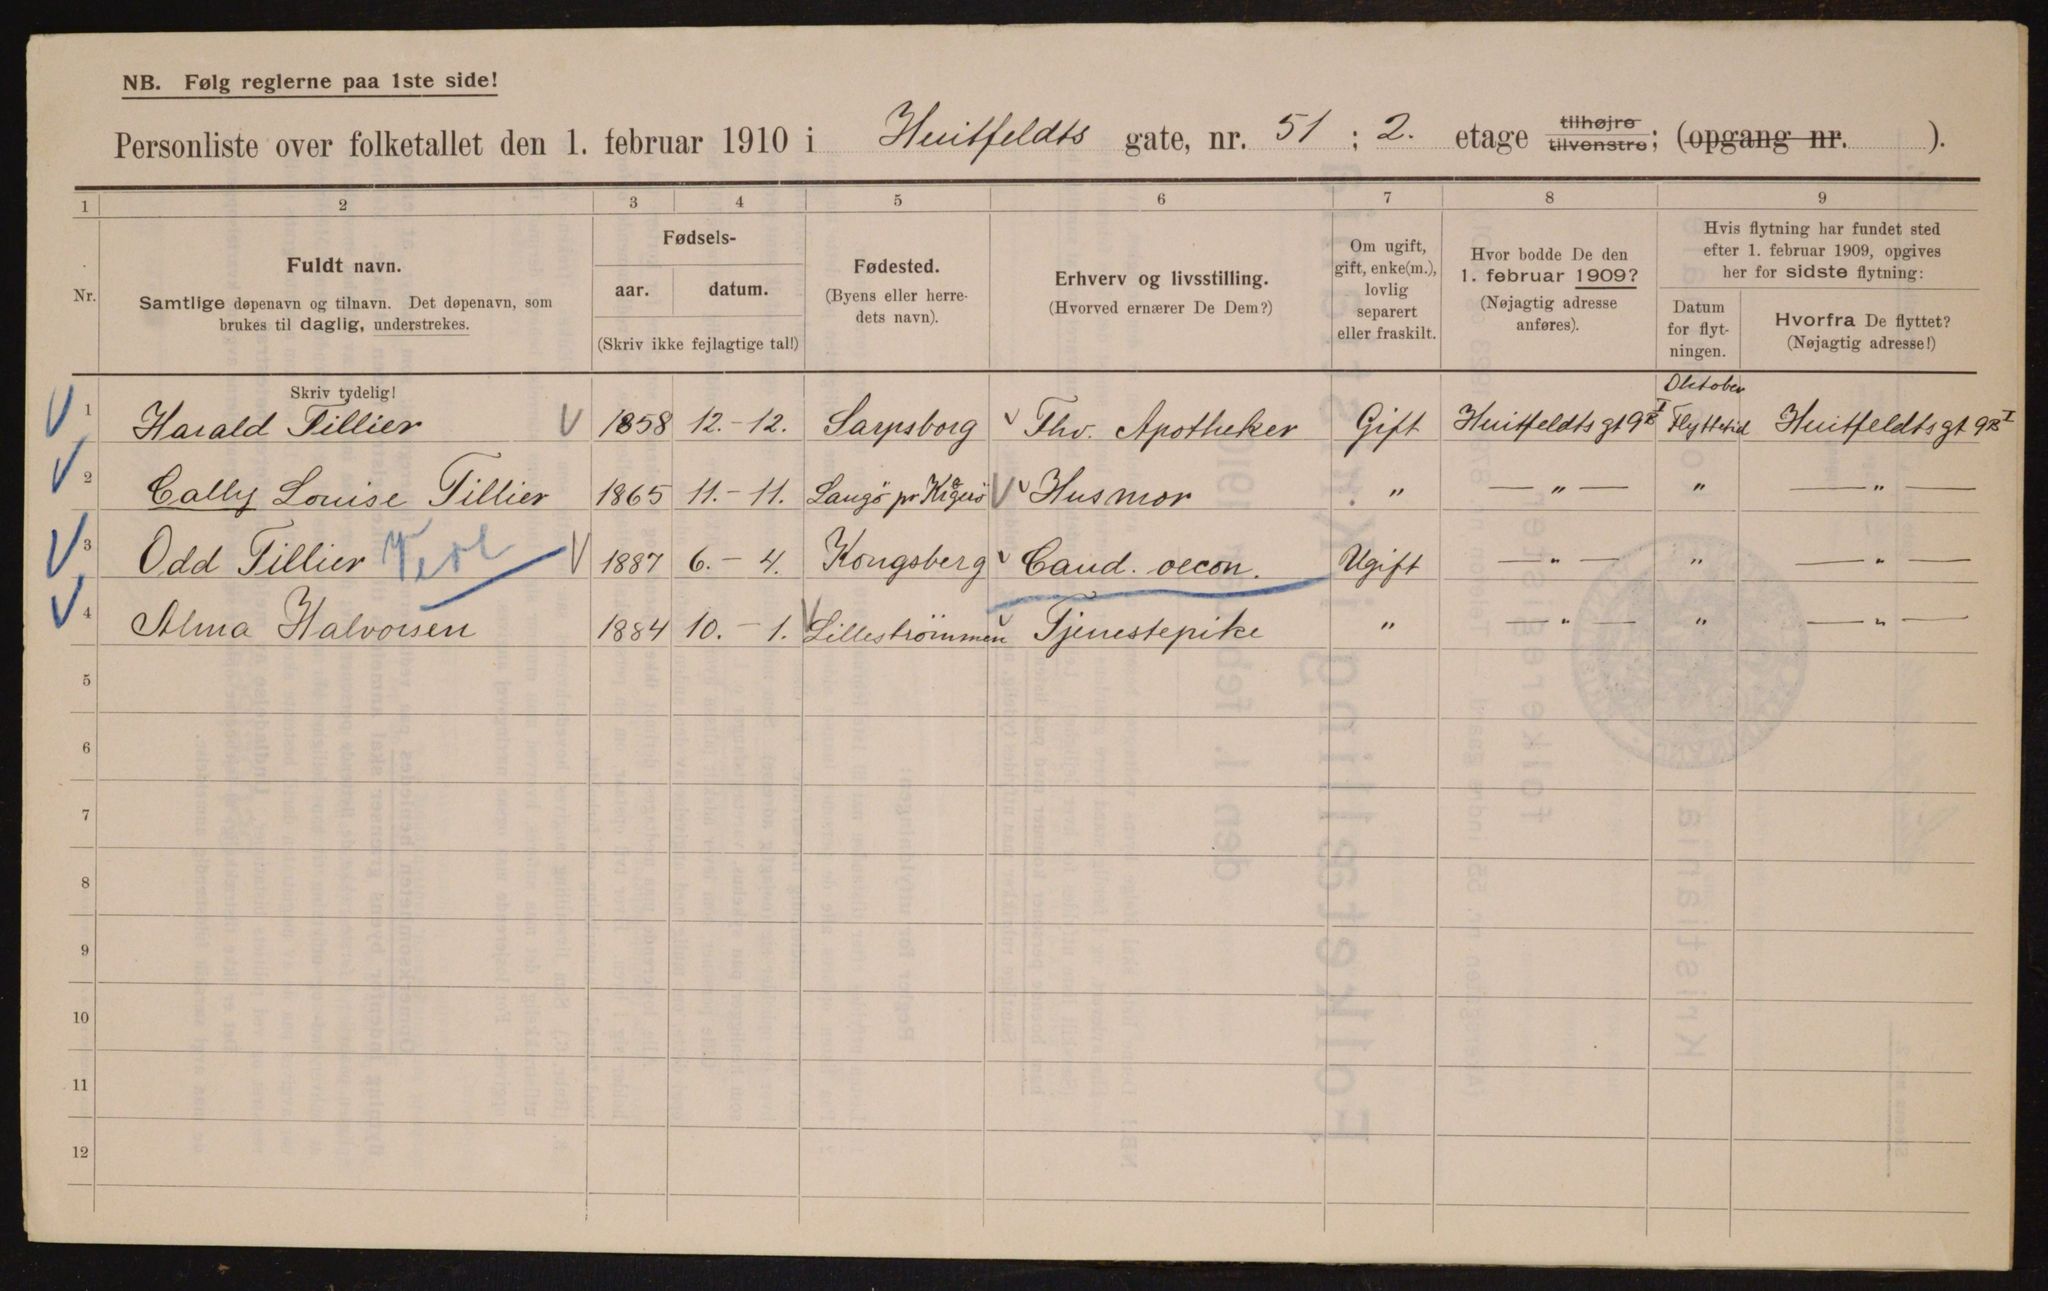 NB. Følg reglerne paa 1ste side!
Personliste over folketallet den 1. februar 1910 i Huitfeldts gate, nr. 51 ; 2. etage tilhøjre tilvenstre; (opgang nr. ).
1 2 3 4 5 6 7 8 9
Nr.
Fuldt navn.
Samtlige døpenavn og tilnavn. Det døpenavn, som
brukes til daglig, understrekes.
Fødsels-
aar. datum.
(Skriv ikke fejlagtige tal!)
Fødested.
(Byens eller herre-
dets navn).
Erhverv og livsstilling.
(Hvorved ernærer De Dem?)
Om ugift,
gift, enke(m.),
lovlig
separert
eller fraskilt.
Hvor bodde De den
1. februar 1909?
(Nøjagtig adresse
anføres).
Hvis flytning har fundet sted
efter 1. februar 1909, opgives
her for sidste flytning:
Datum
for flyt-
ningen.
Hvorfra De flyttet?
(Nøjagtig adresse!)
Skriv tydelig!
1 Harald Tillier 1858 12.-12. Sarpsborg Fhv. Apotheker Gift Huitfeldtsgt 9B I Oktober Flyttetid Huitfeldtsgt 9B I
2 Cally Louise Tillier 1865 11.-11. Langö pr Kragerö Husmor " — " — " — " —
3 Odd Tillier 1887 6.-4. Kongsberg Cand. oecon. Ugift — " — " — " —
4 Alma Halvorsen 1884 10.-1. Lilleströmmen Tjenestepike " — " — " — " —
5
6
7
8
9
10
11
12